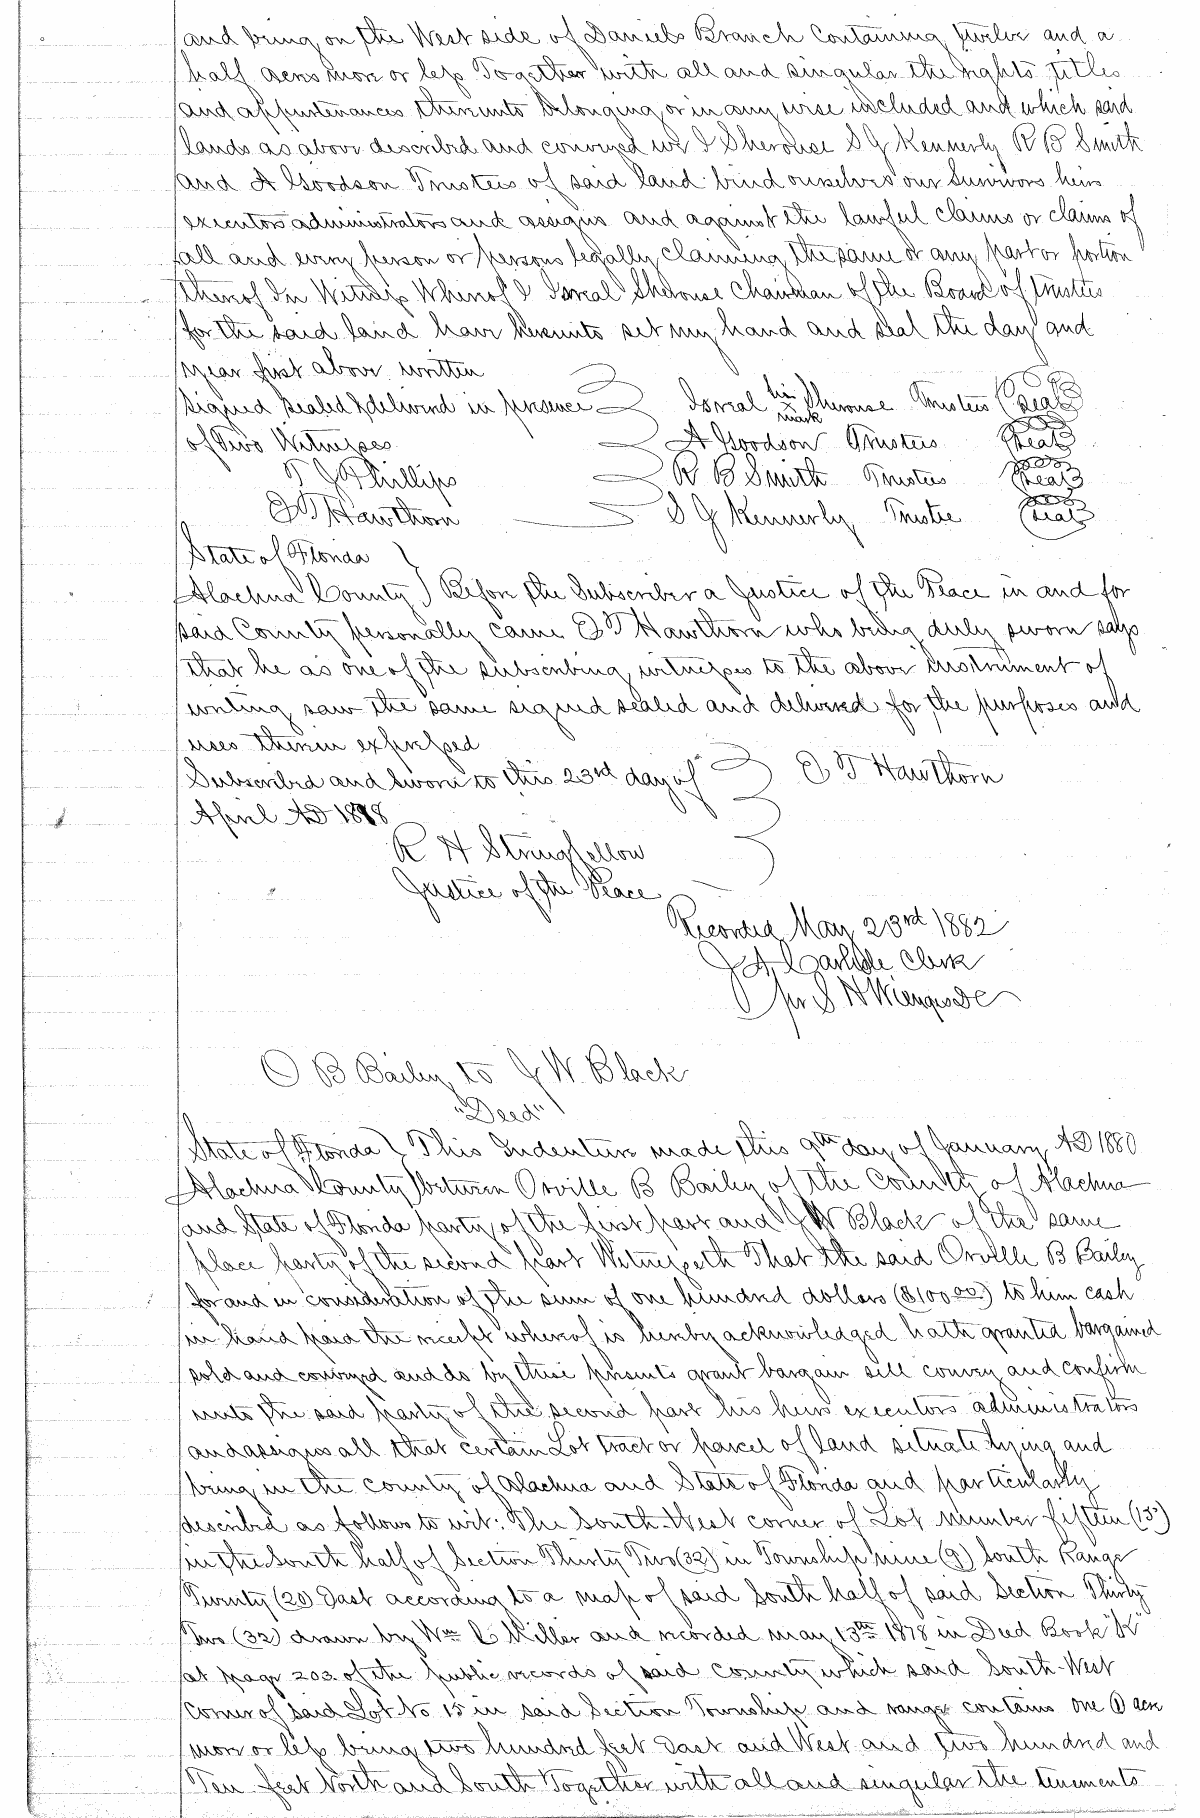 and being on the West side of Daniels Branch Containing twelve and a
half acres more or less Together with all and singular the rights titles
and appurtenances thereunto belonging or in any wise included and which said
lands as above described and conveyed we I Sherouse S J Kennerly R B Smith
and A Goodson Trustees of said land bind ourselves our Survivors heirs
executors administrators and assigns and against the lawful claims or claims of
all and every person or persons legally claiming the same or any part or portion
thereof In Witness Whereof I Isreal Sherouse Chairman of the Board of Trustees
for the said land have hereunto set my hand and seal the day and
year first above written
Signed Sealed & delivered in presence Isreal his mark Sherouse Trustees Seal
of Two Witnesses A Goodson Trustees Seal
T J Phillips R B Smith Trustees Seal
T Hawthorn S J Kennerly Trustee Seal
State of Florida
Alachua County Before the Subscriber a Justice of the Peace in and for
said County personally came T Hawthorn who being duly sworn says
that he as one of the subscribing witnesses to the above instrument of
writing saw the same signed sealed and delivered for the purposes and
uses therein expressed
Subscribed and Sworn to this 23rd day of T Hawthorn
April AD 1878
R H Stringfellow
Justice of the Peace
Recorded May 23rd 1882
J A Carlisle Clerk
pr S H Wienges DC
O B Bailey to J W. Black
"Deed"
State of Florida ) This Indenture made this 9th day of January AD 1880
Alachua County ) between Orville B Bailey of the County of Alachua
and State of Florida party of the first part and J W Black of the same
place party of the second part Witnesseth That the said Orville B Bailey
for and in consideration of the sum of one hundred dollars ($100 00) to him cash
in hand paid the receipt whereof is hereby acknowledged hath granted bargained
sold and conveyed and do by these presents grant bargain sell convey and confirm
unto the said party of the second part his heirs executors administrators
and assigns all that certain Lot tract or parcel of land situate lying and
being in the county of Alachua and State of Florida and particularly
described as follows to wit: The South-West corner of Lot Number fifteen (15)
in the South half of Section Thirty Two (32) in Township nine (9) South Range
Twenty (20) East according to a map of said South half of said Section Thirty
Two (32) drawn by Wm C Miller and recorded May 13th 1878 in Deed Book "K"
at page 203 of the public records of said county which said South-West
Corner of said Lot No 15 in said Section Township and range contains one (1) acre
more or less being two hundred feet East and West and two hundred and
Ten feet North and South Together with all and singular the tenements